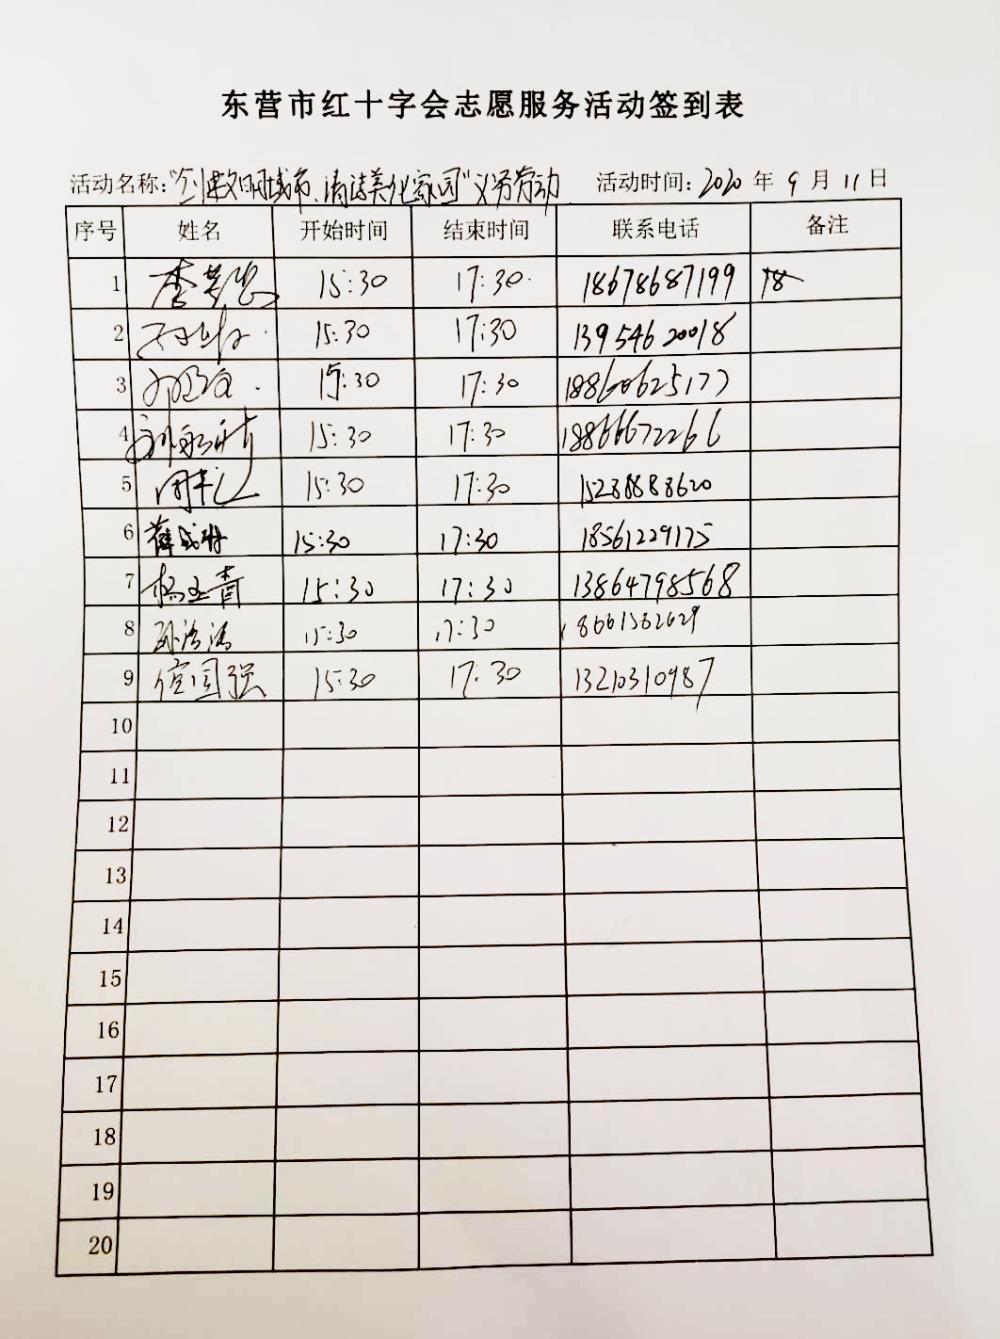 东营市红十字会志愿服务活动签到表
活动名称:"创建文明城市、清洁美化家园"义务劳动 活动时间: 2020 年 9 月 11 日
序号 姓名 开始时间 结束时间 联系电话 备注
1 15:30 17:30 18678687199 18
2 15:30 17:30 13954620018
3 15:30 17:30 18860625177
4 15:30 17:30 18866672266
5 15:30 17:30 15288888620
6 15:30 17:30 18561229175
7 杨玉青 15:30 17:30 13864798568
8 15:30 17:30 18661362629
9 15:30 17:30 13210310987
10
11
12
13
14
15
16
17
18
19
20